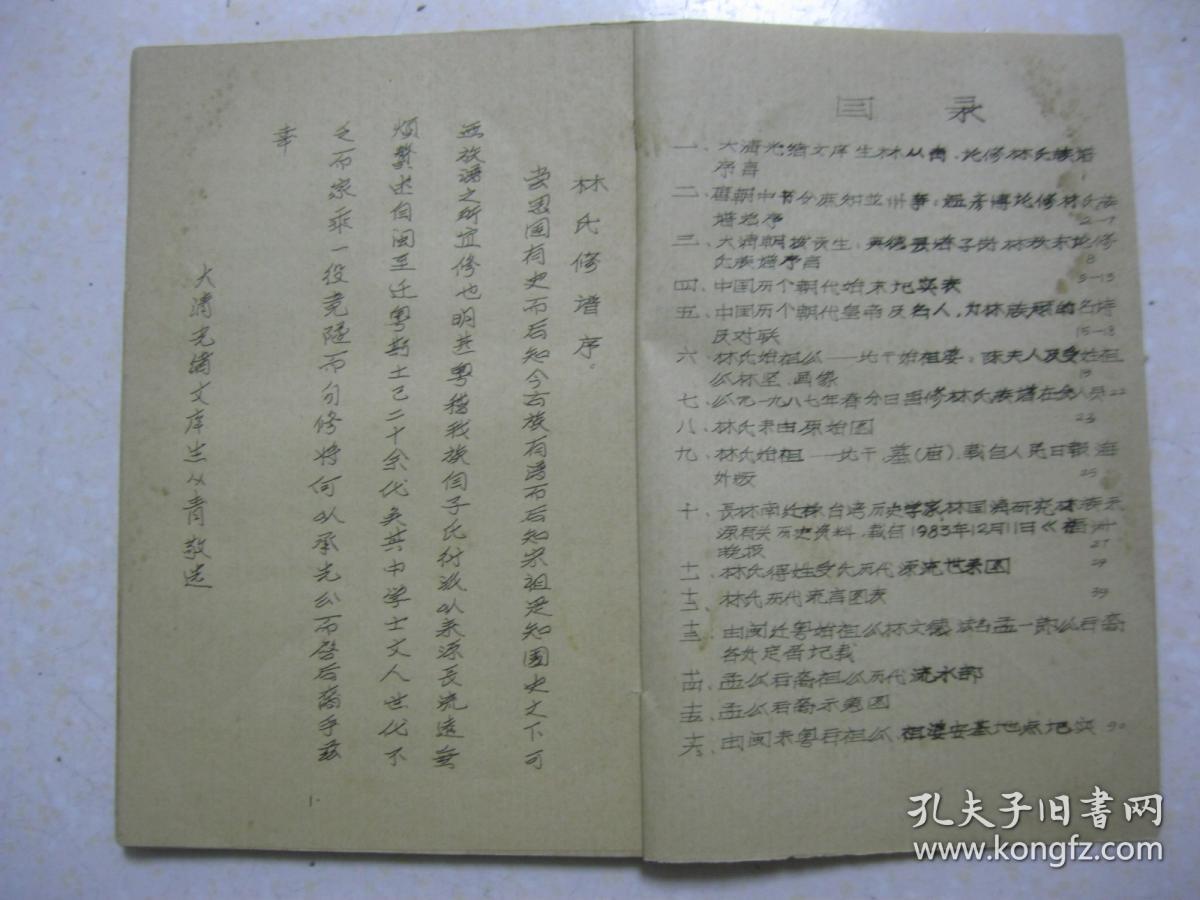 目 录
一、大清光绪文庠生林从青、论修林氏族谱
序言
1
二、唐朝中书分麻知 州事:温彦博论修林氏族
谱 序
2-7
三、大清朝拔贡生:英德县浛子岗林秩东论修
氏族谱序言
8
四、中国历个朝代始末记实表
9-15
五、中国历个朝代皇帝及名人,为林族题的名诗
及对联
15-18
六、林氏始祖公——比干始祖婆:陈夫人及受姓祖
公林坚、画像
19
七、公元一九八七年春分日重修林氏族谱在会人员22
八、林氏来由原始图 23
九、林氏始祖——比干、墓(庙)、载自人民日报海
外版
25
十、長林南迁 台湾历史学家林国 研究林族来
源有关历史资料、载自1983年12月11日《福州
晚报
27
十一、林氏得姓受氏历代源流世系图 29
十二、林氏历代流言图表 39
十三、由闽迁粤始祖公林文德、法名孟一郎公后裔
各处定居记载
十四、孟公后裔祖公历代流水部
十五、孟公后裔示意图
十六、由闽来粤后祖公、祖婆安墓地点记实 90
林氏修谱序
尝思国有史而后知今古族有谱而后知宗祖是知国史之下可
無族谱之所宜修也明甚粤稽我族自子氏衍派以来源長流遠無
煩贅述自闽至迁粤斯土已二十余代矣其中学士文人世代不
乏而家乘一役竟隧而勿修将何以承先公而啓后裔乎茲
幸
大清光绪文庠生从青敬选
1.
孔夫子旧書网
www.kongfz.com